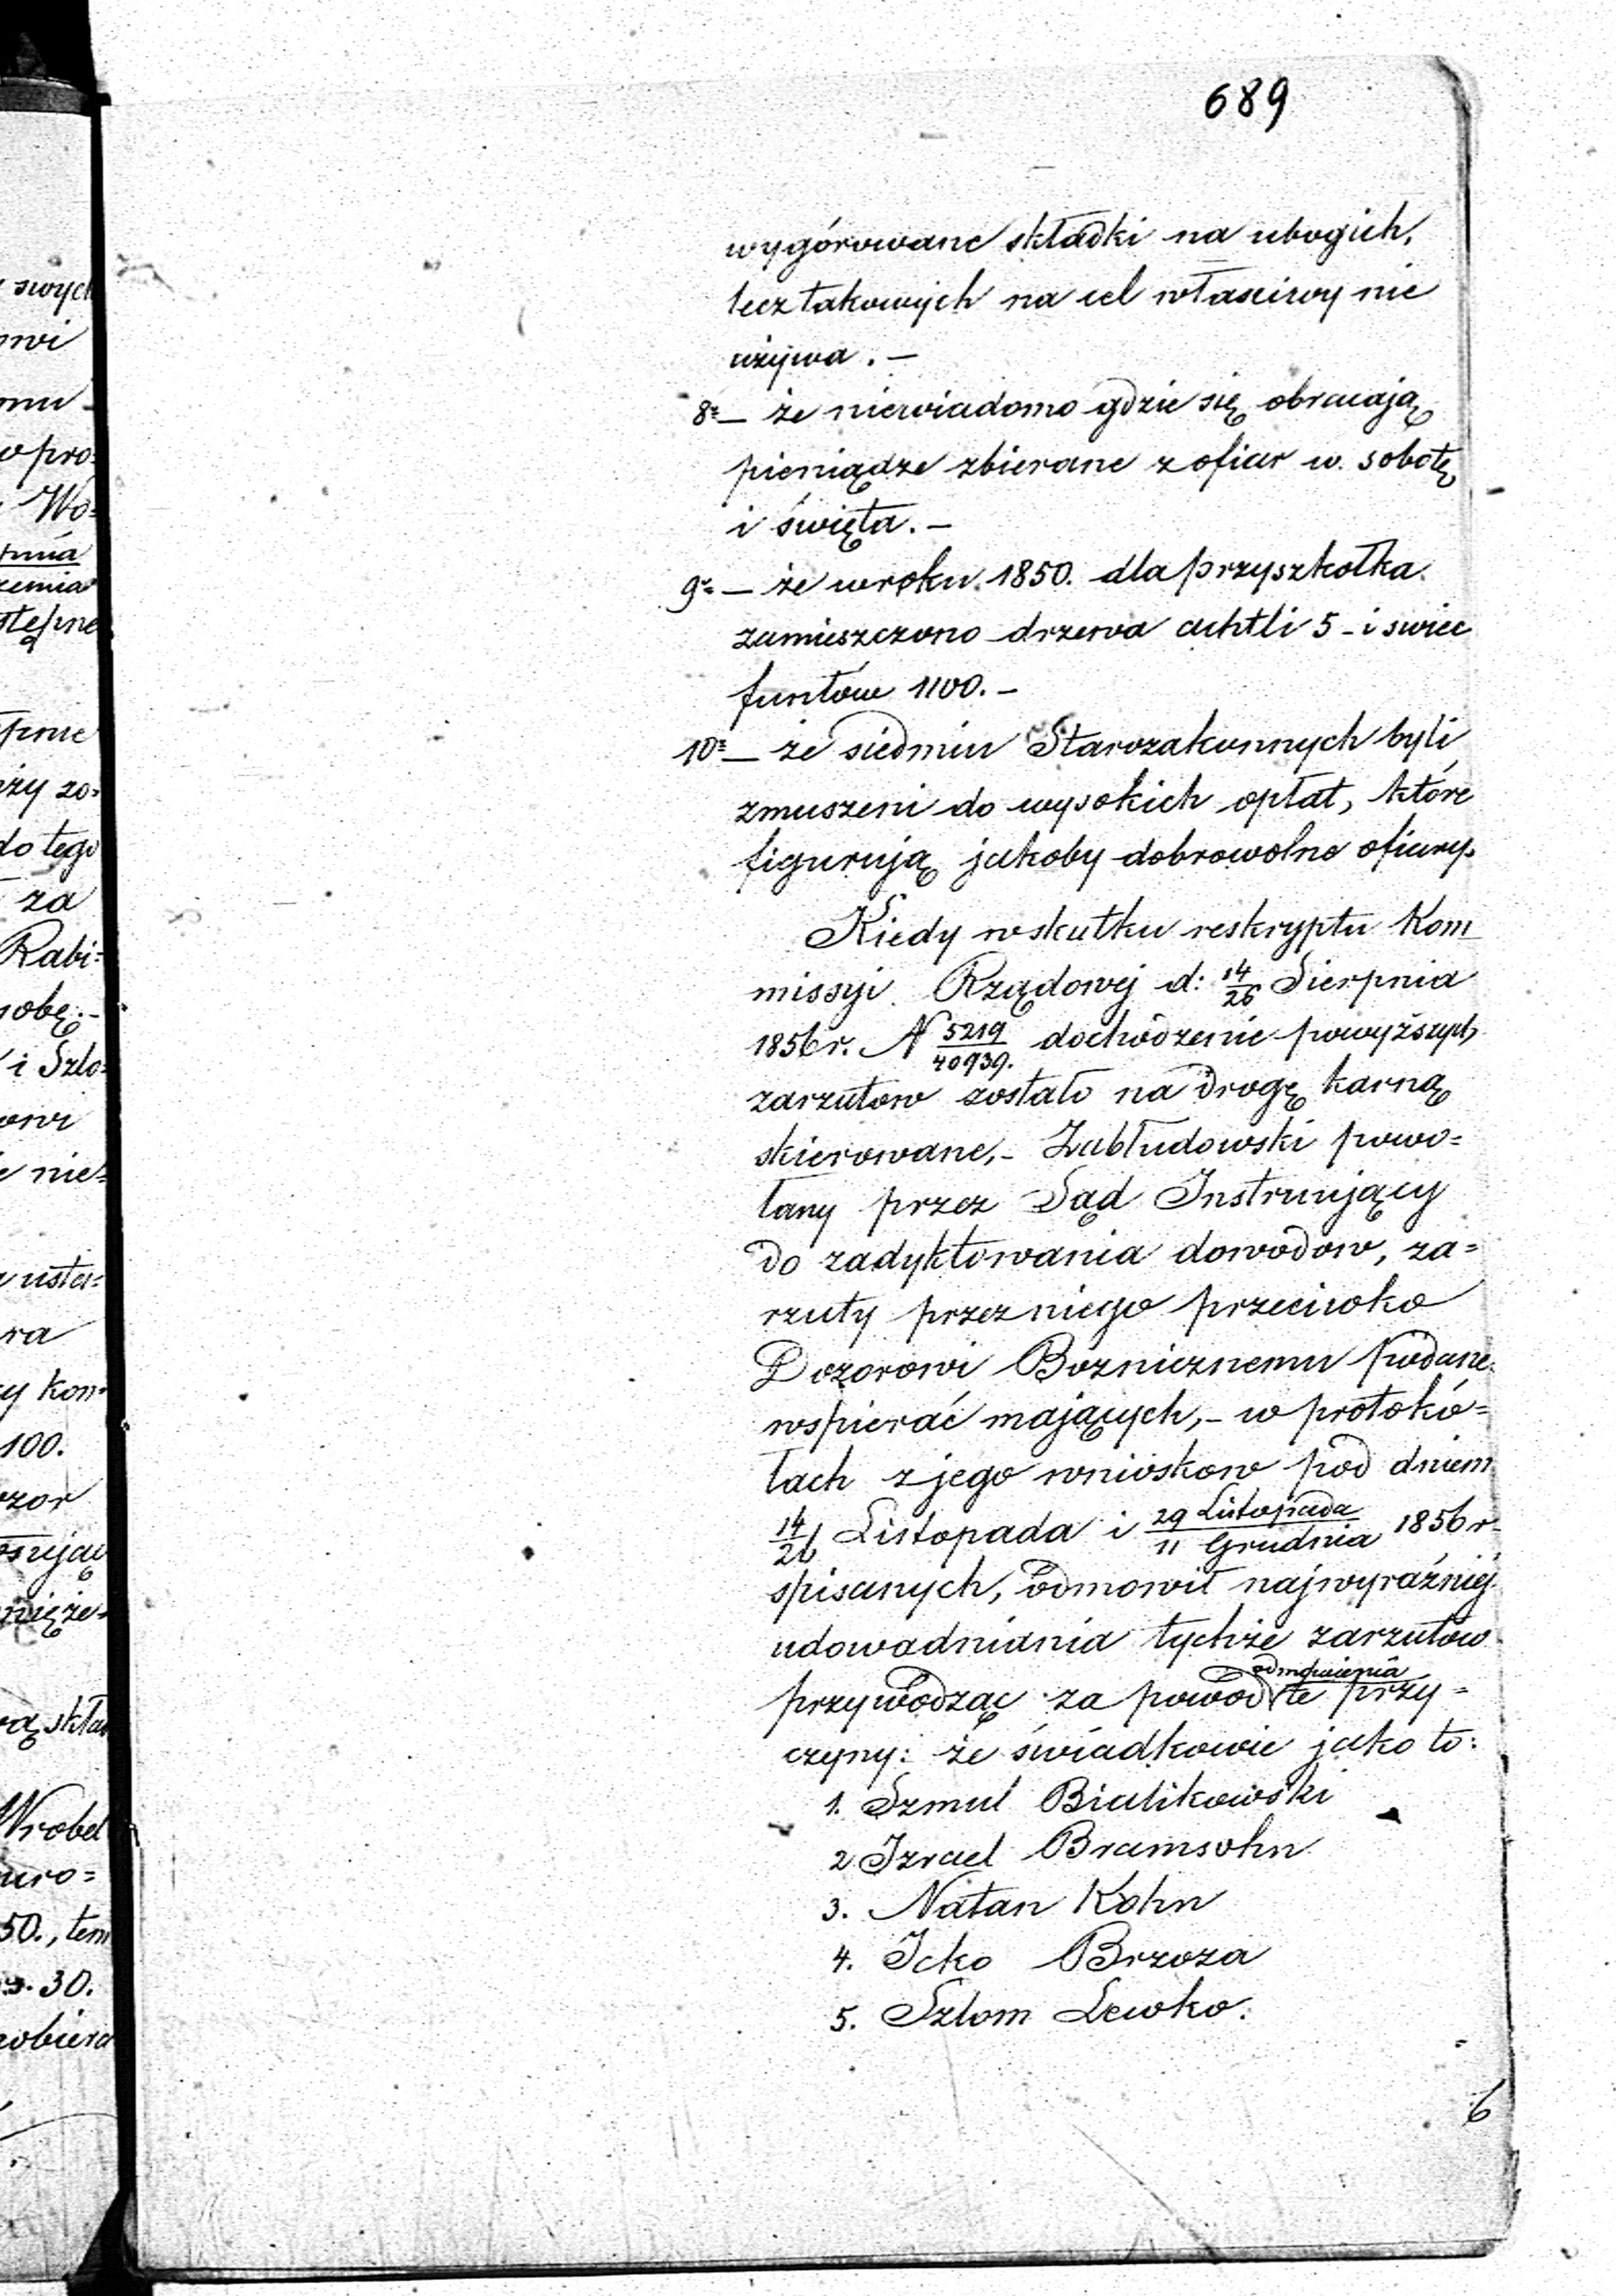 689
wygórowane składki na ubogich,
lecz takowych na cel własciwy nie
używa. —
8º — że niewiadomo gdzie się obracają
pieniądze zbierane z ofiar w sobotę
i święta. —
9º — że w roku 1850. dla przyszkołka
zamieszczono drzewa achtli 5 - i swiec
funtów 1100. —
10º — że siedmiu Starozakonnych byli
zmuszeni do wysokich opłat, które
figurują jakoby dobrowolne ofiary.
Kiedy wskutku reskryptu Kom
missyi Rządowej d: 14/26 Sierpnia
1856 r. N 5219/40939. dochodzenie powyższych
zarzutow zostało na drogę karną
skierowane, - Zabłudowski powo=
łany przez Sąd Instruujący
do zadyktowania dowodow, za=
rzuty przez niego przeciwko
Dozorowi Bóżnicznemu podane
wspierać mających, - w protokó=
łach z jego wnioskow pod dniem
14/26 Listopada i 29 Listopada/11 Grudnia 1856 r
spisanych, odmowił najwyraźniej
udowadniania tychże zarzutów
odmowienia
przywodząc za powod te przy=
czyny: że świadkowie jako to:
1. Szmul Bialikowski
2 Izrael Bramsohn
3. Natan Kohn
4. Icko Brzoza
5. Szlom Lewko.
6
swych
mu
w pro=
Wo=
zemia
pnie
do tego
za
Rabi=
sobę. -
i Szlo=
nie=
ra
kon=
100.
Wrobel
50., tem
30.